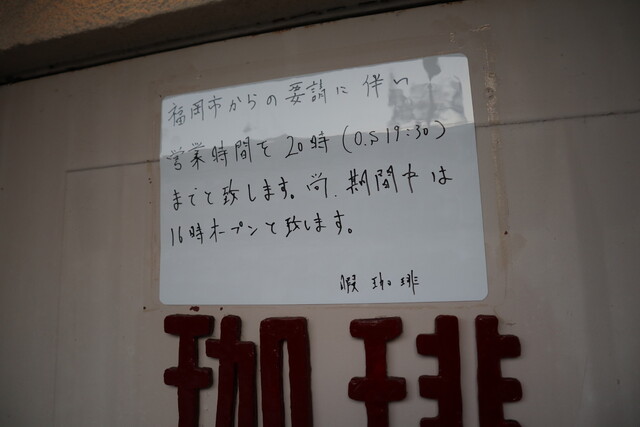 福岡市からの要請に伴い
営業時間を20時(O.S 19:30)
までと致します。尚、期間中は
16時オープンと致します。
暇 珈琲
珈琲